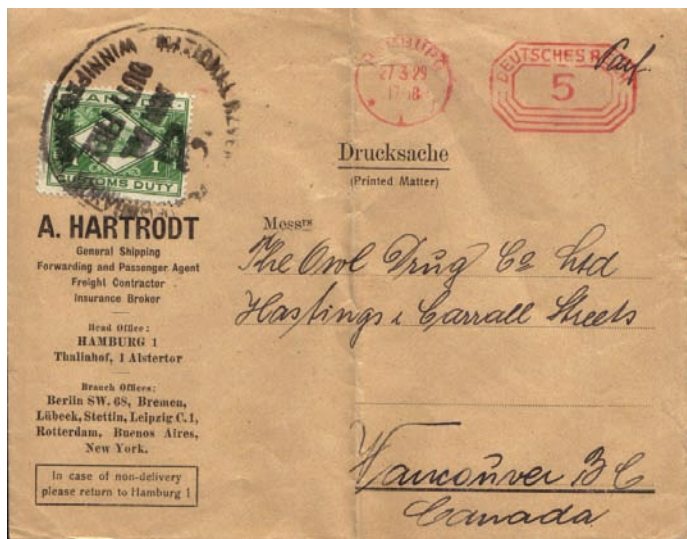 HAMBURG
27.3.29
17-18
DEUTSCHES REICH
5
NATIONAL REVENUE
WINNIPEG
DUTY FREE
CANADA
1 1
CUSTOMS DUTY
Drucksache
(Printed Matter)
A. HARTRODT
General Shipping
Forwarding and Passenger Agent
Freight Contractor
Insurance Broker
Head Office:
HAMBURG 1
Thaliahof, 1 Alstertor
Branch Offices:
Berlin SW. 68, Bremen,
Lübeck, Stettin, Leipzig C. 1,
Rotterdam, Buenos Aires,
New York.
In case of non-delivery
please return to Hamburg 1
Messrs
The Owl Drug Co Ltd
Hastings & Carrall Streets
Vancouver B C
Canada